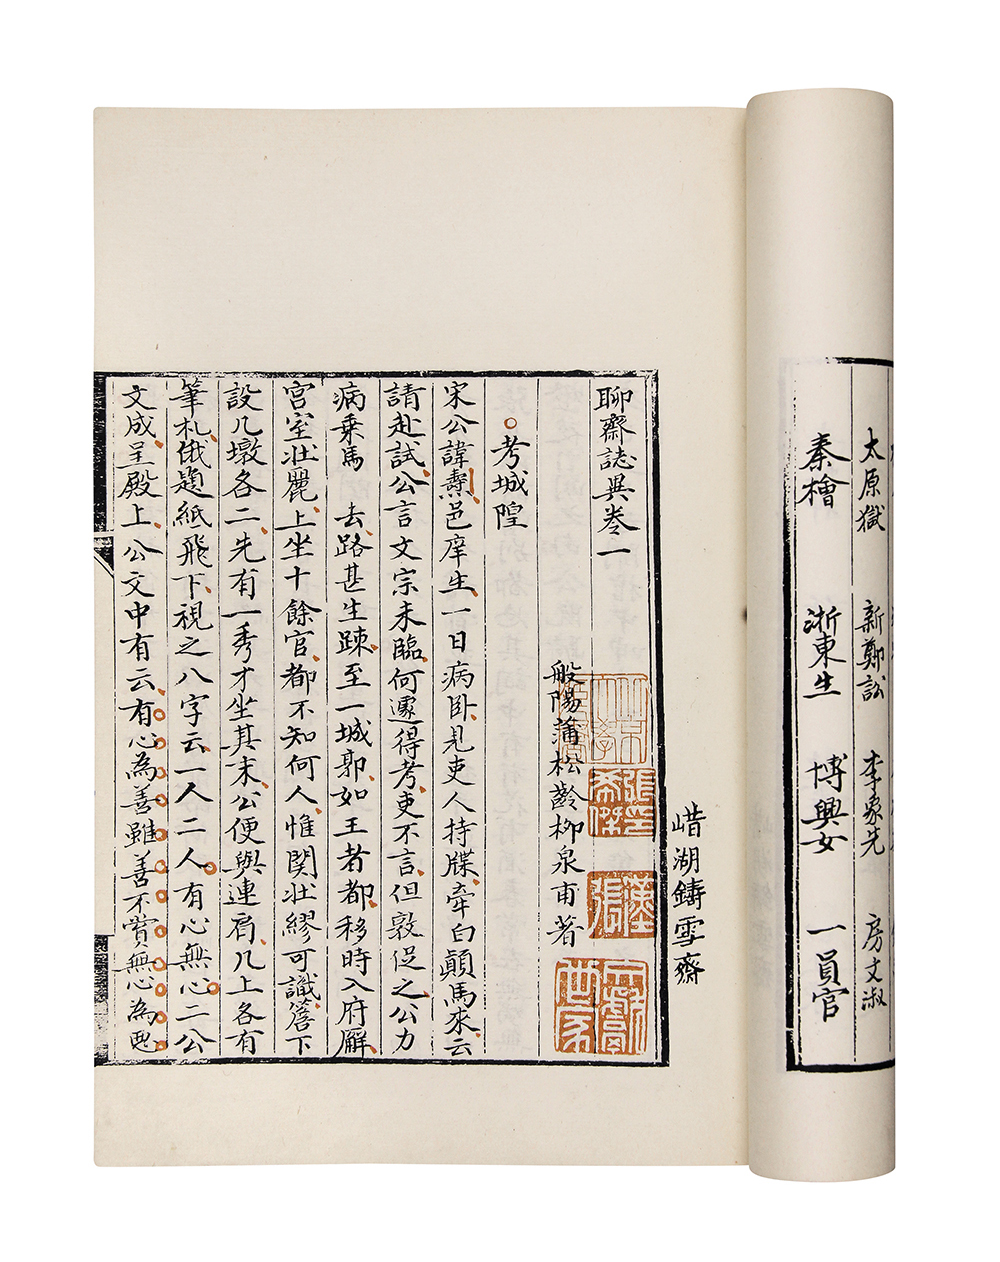 太原獄 新鄭訟 李象先 房文淑
秦檜 浙東生 博興女 一員官
湖鑄雪齋
聊齋誌異卷一
般陽蒲松齡柳泉甫著
考城隍
宋公諱燾邑庠生一日病卧見吏人持牒牽白顛馬來云
請赴試公言文宗未臨何遽得考吏不言但敦促之公力
病乘馬 去路甚生踈至一城郭如王者都移時入府廨
宮室壯麗上坐十餘官都不知何人惟関壮繆可識簷下
設几墩各二先有一秀才坐其末公便與連肩几上各有
筆札俄題紙飛下視之八字云一人二人有心無心二公
文成呈殿上公文中有云有心為善雖善不賞無心為惡
張希傑印
文獻世家